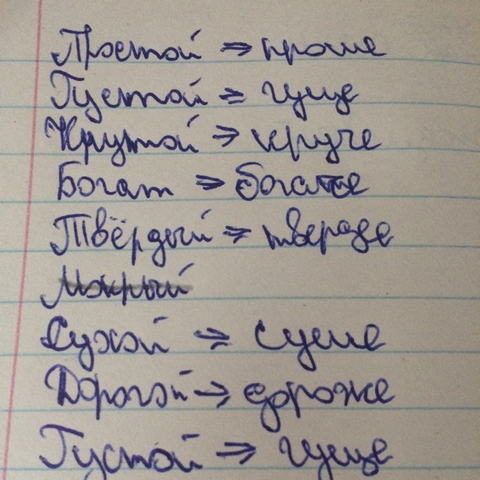 Простой => проще
Густой => гуще
Крутой => круче
Богат => богаче
Твёрдый => твёрдее
Мокрый
Сухой => суше
Дорогой -> дороже
Густой => гуще